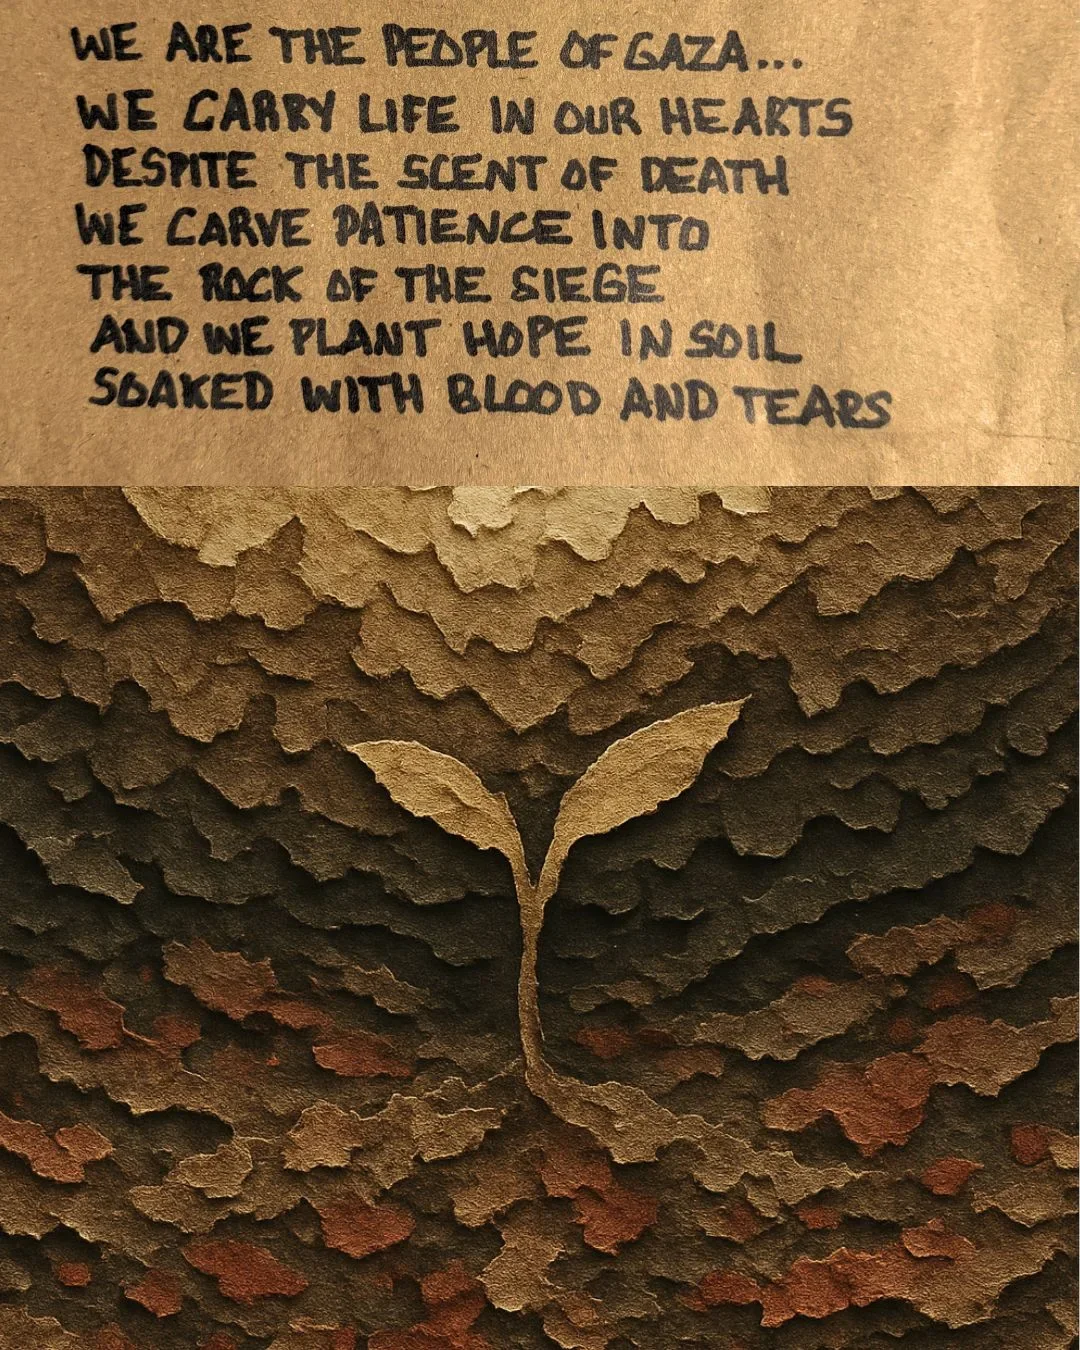 WE ARE THE PEOPLE OF GAZA...
WE CARRY LIFE IN OUR HEARTS
DESPITE THE SCENT OF DEATH
WE CARVE PATIENCE INTO
THE ROCK OF THE SIEGE
AND WE PLANT HOPE IN SOIL
SOAKED WITH BLOOD AND TEARS